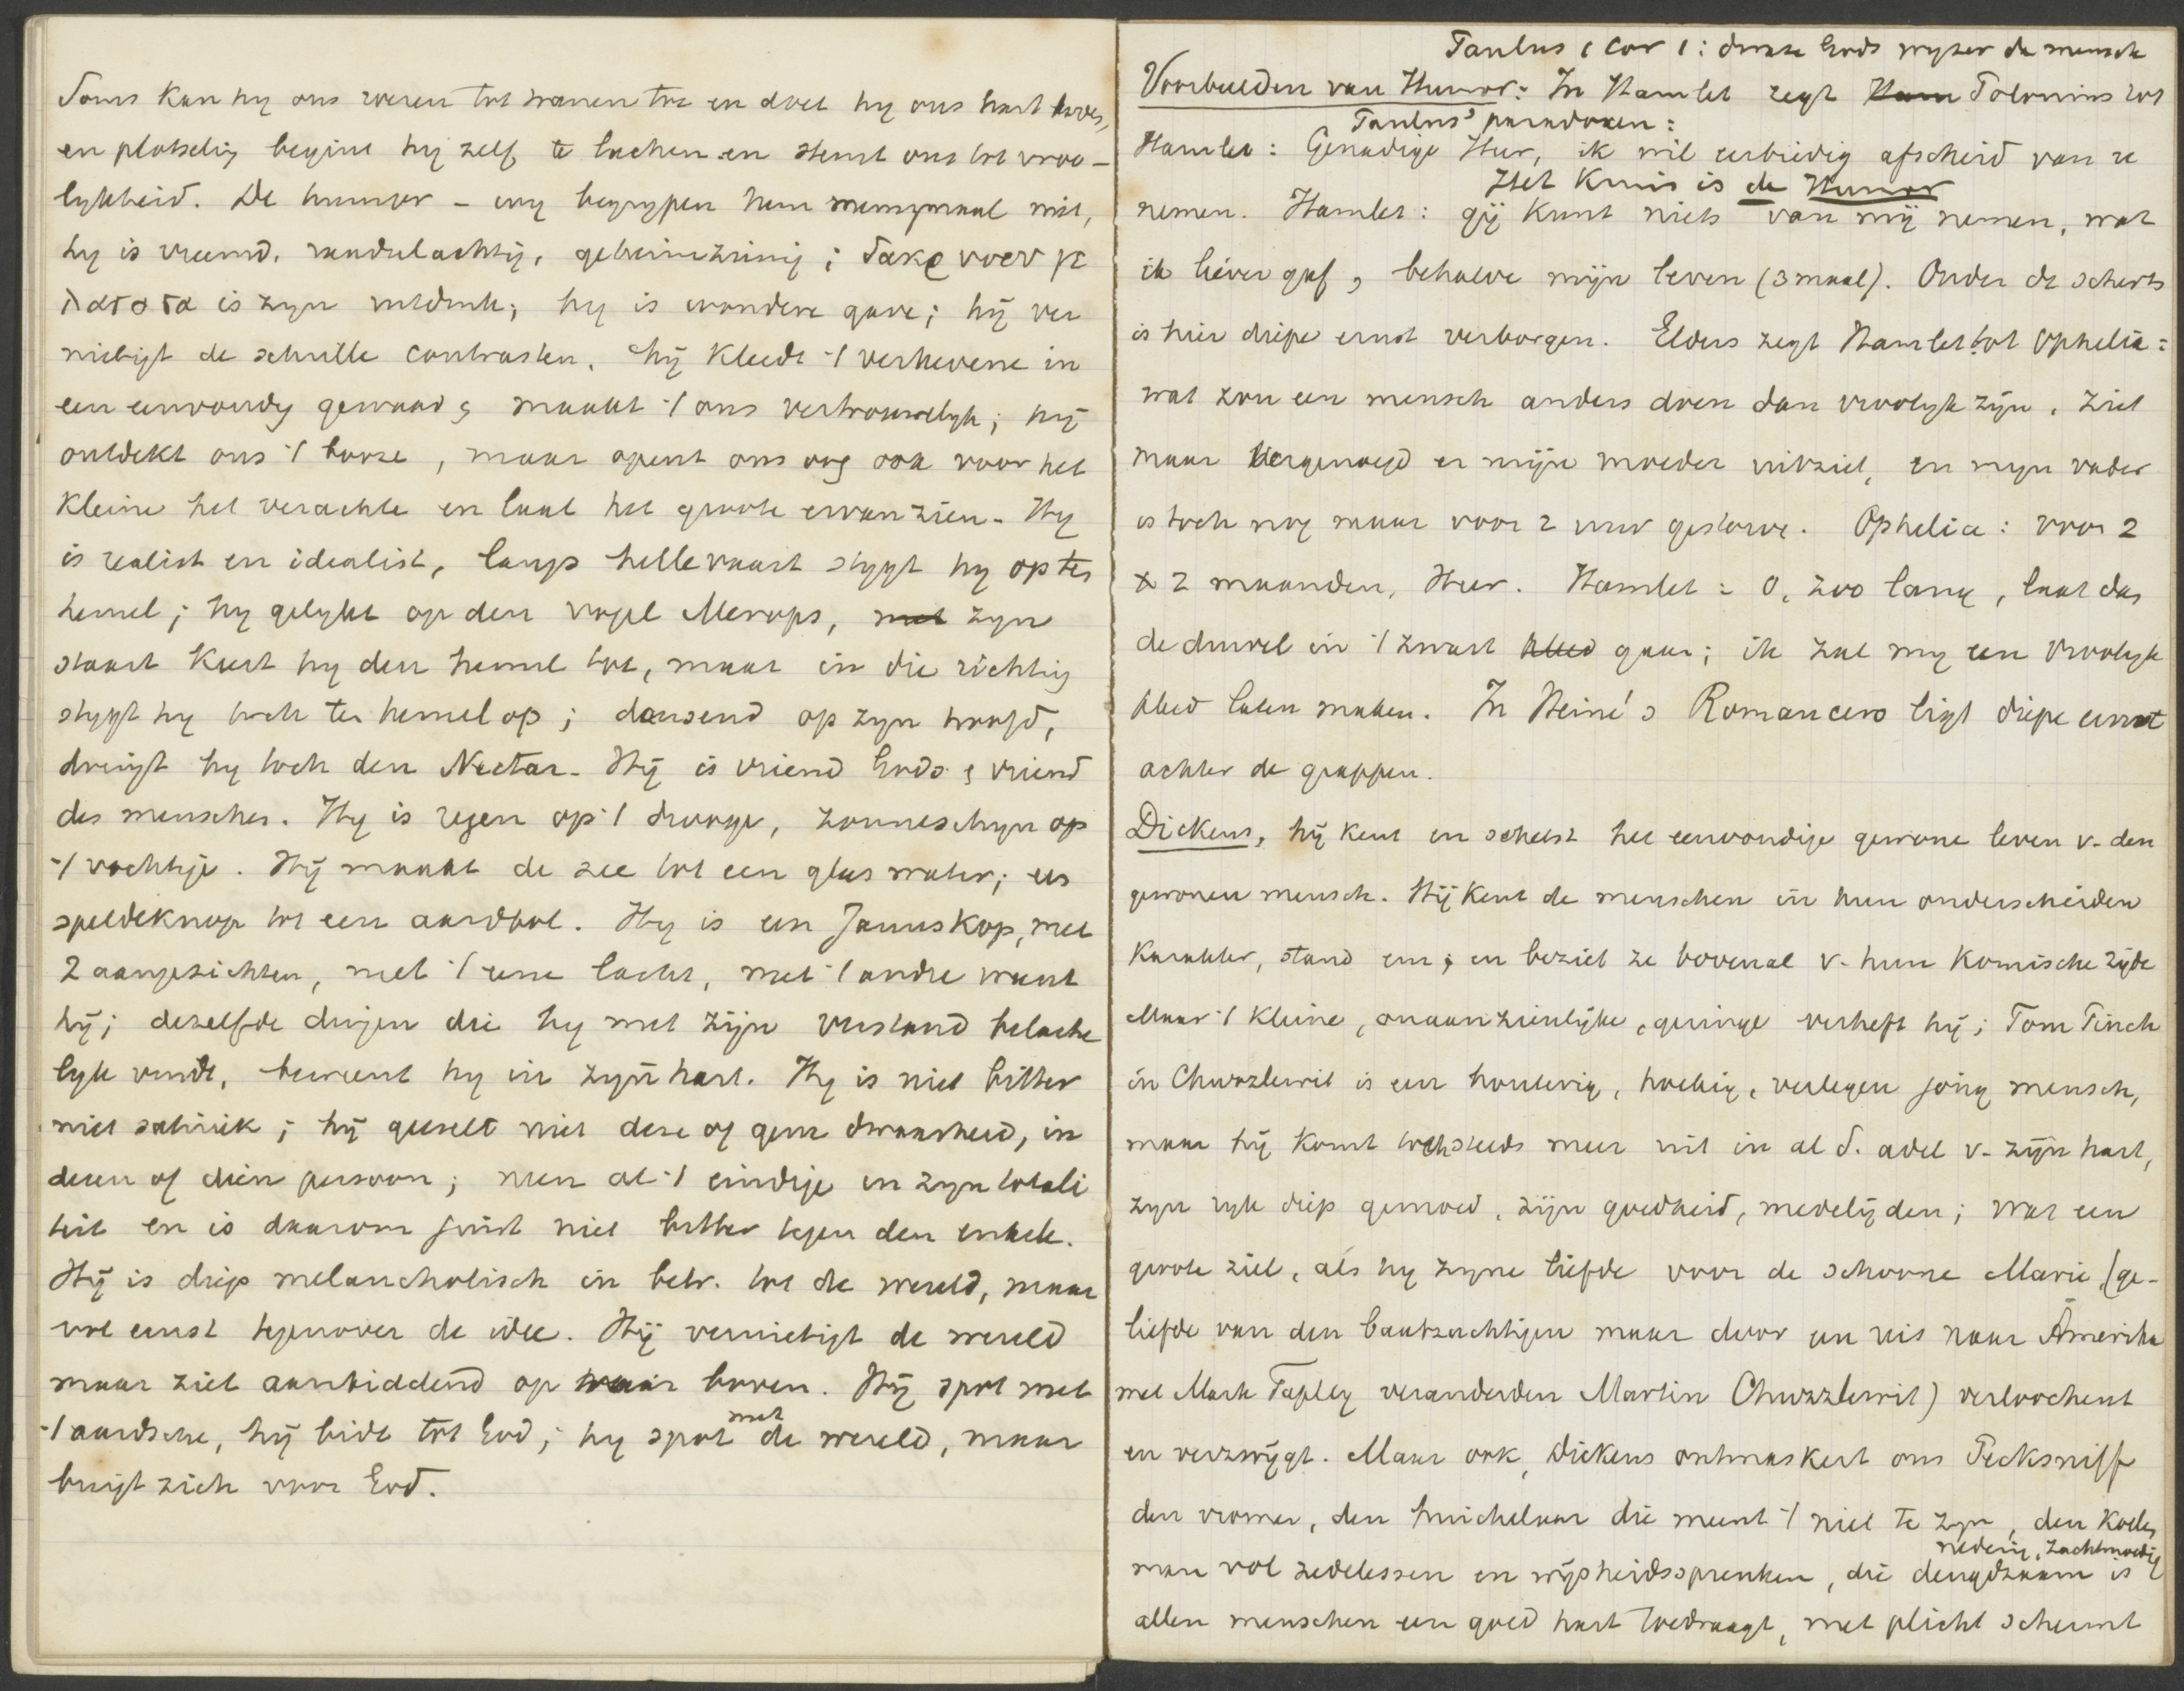 Soms kan hij ons roeren tot tranen toe en doet hij ons hart beven,
en plotselijg begint hij zelf te lachen en stemt ons tot vroo-
lykheid. De humor - wij begrypen hem menigmaal niet,
hy is vreemd, raadselachtig, geheimzinnig; δακρυοεν γε
λασασα is zyn uitdruk; hy is wondere gave; hij ver
nietigt de schrille contrasten. hij kleedt 't verhevene in
een eenvoudig gewaad & maakt 't ons vertrouwelyk; hij
ontdekt ons 't booze, maar opent ons oog ook voor het
kleine het verachte en laat het groote ervan zien. Hy
is realist en idealist, langs hellevaart stygt hy op ten
hemel; hy gelykt op den vogel Merops, met zyn
staart keert hy den hemel toe, maar in die richtig
stygt hy toch ten hemel op; dansend op zyn hoofd,
drinkt hy toch den Nectar. Hij is vriend Gods & vriend
des menschen. Hy is regen op 't drooge, zonneschyn op
't vochtige. Hij maakt de zee tot een glas water; een
speldeknop tot een aardbol. Hy is een Januskop, met
2 aangezichten, met 't eene lacht, met 't andre weent
hij; dezelfde dingen die hy met zijn verstand belache
lyk vindt, beweent hy in zijn hart. Hy is niet bitter
niet satiriek; hij geeselt niet deze of gene dwaasheid, in
dezen of dien persoon; men al 't eindige in zyn totali
teit en is daarom juist niet bitter tegen den enkele.
Hij is diep melancholisch in betr. tot de wereld, maar
vol ernst tegenover de idee. Hij vernietigt de wereld
maar ziet aanbiddend op naar boven. Hij spot met
't aardsche, hij bidt tot God; hy spot met de wereld, maar
buigt zich voor God.
Paulus 1 Cor 1: dwaze Gods wyzer de mensch
Voorbeelden van Humor: In Hamlet zegt Ham Polonius tot
Paulus' paradoxen:
Hamlet: Genadige Heer, ik wil eerbiedig afscheid van u
Het Kruis is de Humor
nemen. Hamlet: gij kunt niets van mij nemen, wat
ik liever gaf, behalve mijn leven (3 maal). Onder de scherts
is hier diepe ernst verborgen. Elders zegt Hamlet tot Ophelia:
wat zou een mensch anders doen dan vroolyk zijn. Ziet
maar hoe vergenoegd er mijn moeder uitziet, en myn vader
is toch nog maar voor 2 uur gestorve. Ophelia: voor 2
x 2 maanden, Heer. Hamlet: O, zoo lang, laat dan
de duivel in 't zwart kleed gaan; ik zal my een vroolyk
kleed laten maken. In Heine's Romancero ligt diepe ernst
achter de grappen.
Dickens, hij kent en schetst het eenvoudige gewone leven v. den
gewonen mensch. Hij kent de menschen in hun onderscheiden
karakter, stand enz en beziet ze bovenal v. hun komische zijde
Maar 't kleine, onaanzienlijke, geringe verheft hij; Tom Pinch
in Chuzzlewit is een houterig, hoekig, verlegen jong mensch,
maar hij komt toch steeds meer uit in al d. adel v. zijn hart,
zyn ryk diep gemoed, zijn goedheid, medelijden; wat een
groote ziel, als hy zyne liefde voor de schoone Marie, (ge-
liefde van den baatzuchtigen maar door een reis naar Amerika
met Mark Tapley veranderden Martin Chuzzlewit) verloochent
en verzwijgt. Maar ook, Dickens ontmaskert ons Pecksniff
den vromen, den huichelaar die meent 't niet te zyn, den koelen
nederig, zachtmoedig
man vol zedelessen en wijsheidsspreuken, die deugdzaam is
allen menschen een goed hart toedraagt, met plicht schermt